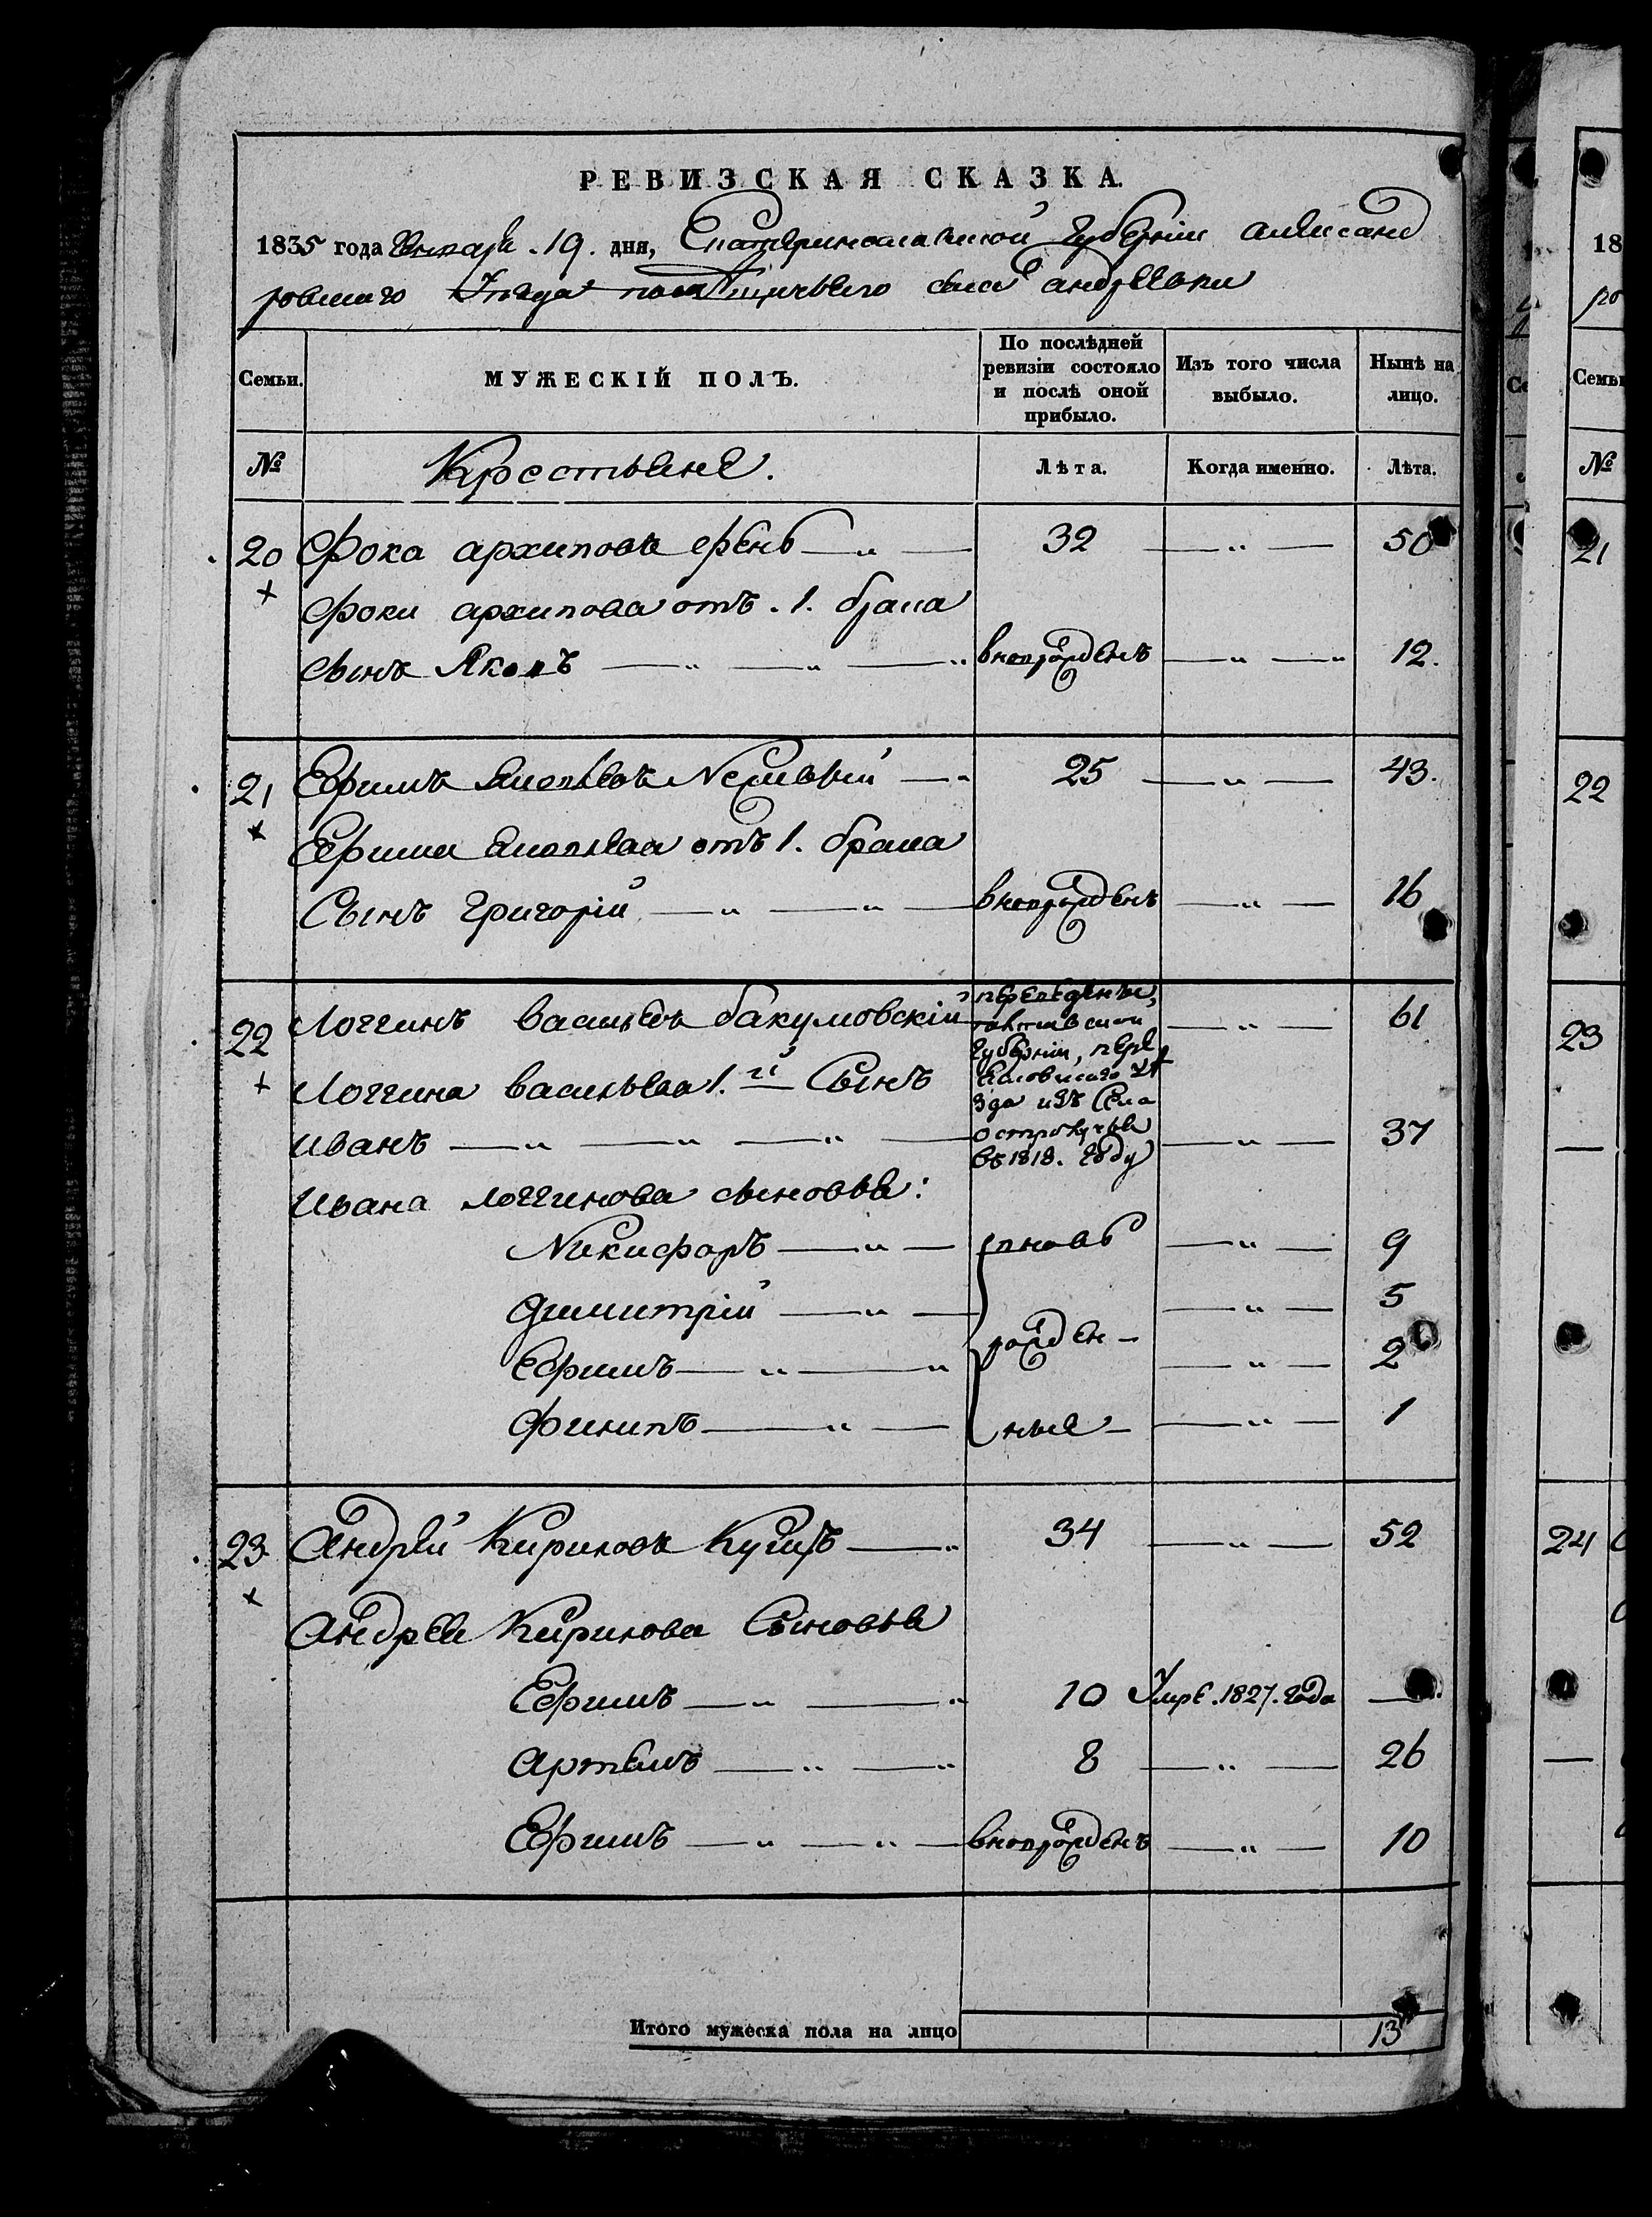 РЕВИЗСКАЯ СКАЗКА.
1835 года Января .19. дня, Екатеринославской губерніи александ
ровскаго уѣзда помѣщичьяго села андреевки
Семьи.
МУЖЕСКІЙ ПОЛЪ.
По послѣдней ревизіи состояло и послѣ оной прибыло.
Изъ того числа выбыло.
Нынѣ на лицо.
№ Крестьяне. Лѣта. Когда именно. Лѣта.
20 Фока архиповъ 32 — " — 50
Фоки архипова отъ .1. брака
сынъ Яковъ — " — " — " вновьрожденъ — " — " 12.
21 Ефимъ Яковлевъ — " 25 — " — 43.
Ефима Яковлева отъ 1. брака
Сынъ григорій — " — " — вновьрожденъ — " — 16
22 Логгинъ васильевъ бакумовскій — " — 61
переведены,
полтавской
губерніи, пере
яславскаго уѣ
зда изъ села
въ 1818. году
Логгина васильева 1.й Сынъ
иванъ — " — " — " — — " — 37
ивана логгинова сыновья:
Никифоръ — " — вновь — " — 9
Димитрій — " — — " — 5
Ефимъ — " — " рожден- — " — 2
Филипъ — " — ные — — " — 1
23 Андрей Кириловъ 34 — " — 52
Андрея Кирилова Сыновья
Ефимъ — " — " 10 Умре .1827. года —
Артемъ — " — " 8 — " — 26
Ефимъ — " — " — вновьрожденъ — " — 10
Итого мужеска пола на лицо 13
18
Семьи
№
21
22
23
24